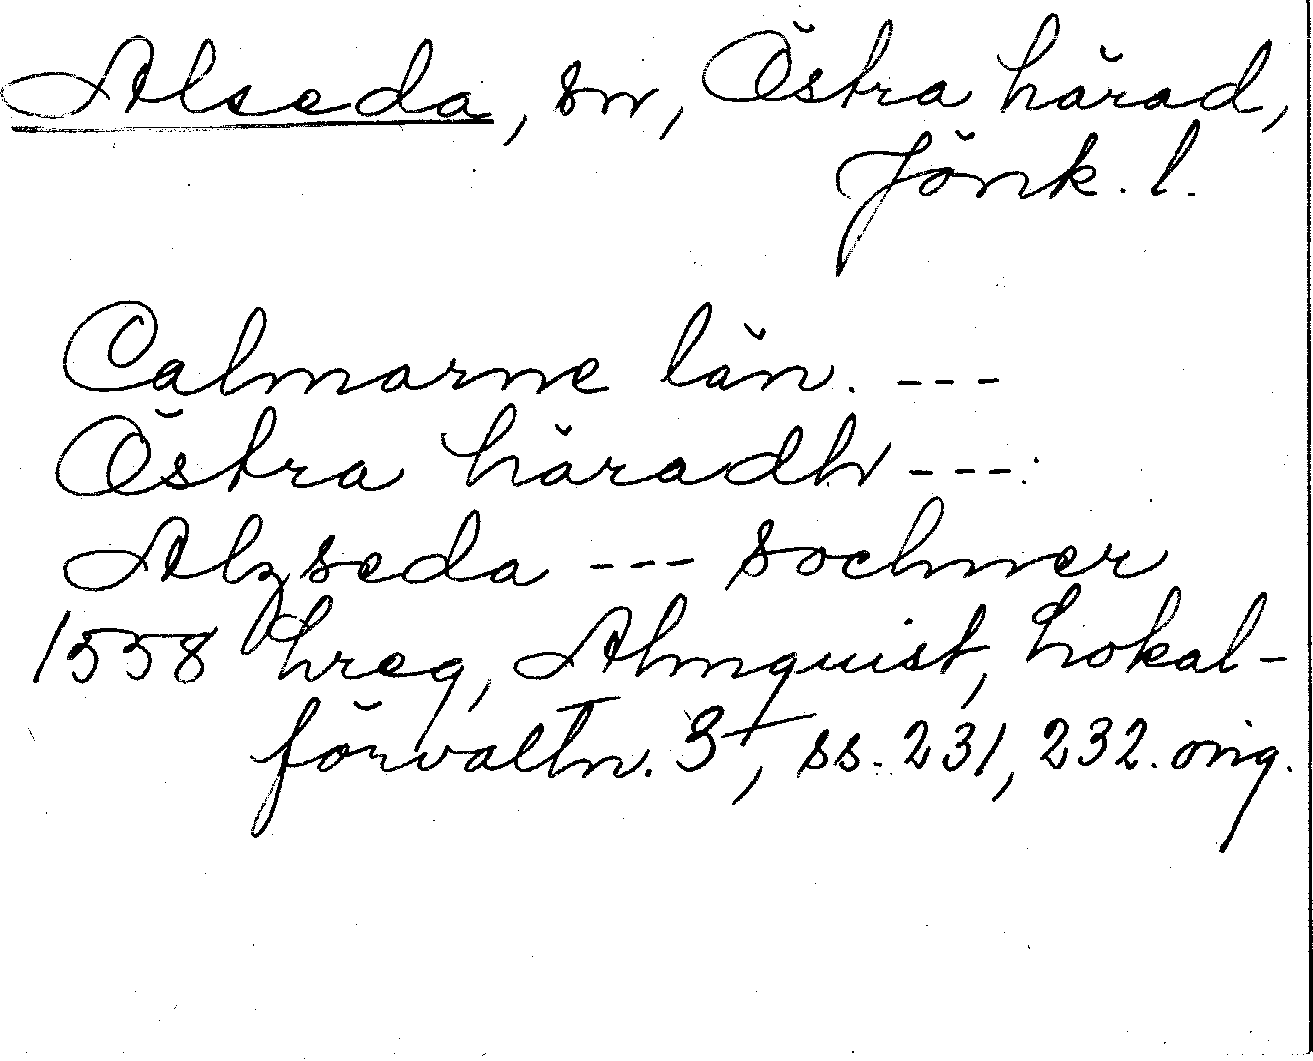 Alseda, sn, Östra härad,
Jönk. l.
Calmarne län. ---
Östra häradh ---:
Alzseda --- sochner
1558 hreg, Almquist, Lokal-
förvaltn. 3, ss. 231, 232. orig.